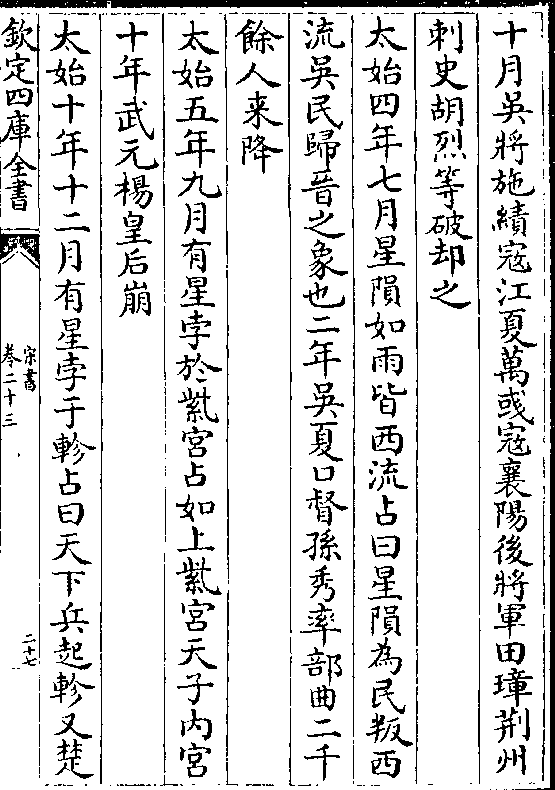 十月吳將施績寇江夏萬彧寇襄陽後將軍田璋荆州
刺史胡烈等破却之
太始四年七月星隕如雨皆西流占曰星隕為民叛西
流吳民歸晉之象也二年吳夏口督孫秀率部曲二千
餘人来降
太始五年九月有星孛於紫宫占如上紫宫天子内宫
十年武元楊皇后崩
太始十年十二月有星孛于軫占曰天下兵起軫又楚
欽定四庫全書
宋書
卷二十三
二十七